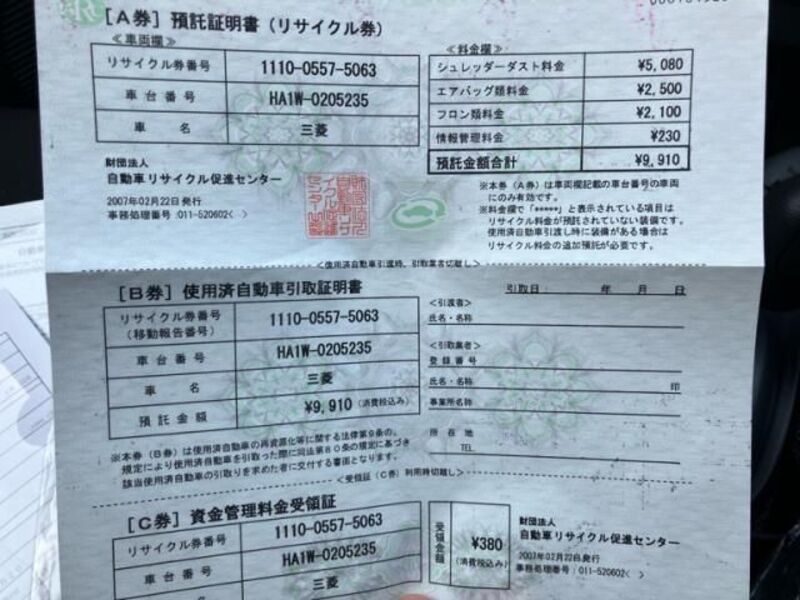 [A券] 預託証明書 (リサイクル券)
≪車両欄≫
リサイクル券番号 1110-0557-5063
車台番号 HA1W-0205235
車名 三菱
≪料金欄≫
シュレッダーダスト料金 ¥5,080
エアバッグ類料金 ¥2,500
フロン類料金 ¥2,100
情報管理料金 ¥230
預託金額合計 ¥9,910
財団法人
自動車リサイクル促進センター
2007年02月22日発行
事務処理番号:011-520602( )
※本券(A券)は車両欄記載の車台番号の車両
にのみ有効です。
※料金欄で「*****」と表示されている項目は
リサイクル料金が預託されていない装備です。
使用済自動車引渡し時に装備がある場合は
リサイクル料金の追加預託が必要です。
<使用済自動車引渡時、引取業者切離し>
[B券] 使用済自動車引取証明書
リサイクル券番号 1110-0557-5063
(移動報告番号)
車台番号 HA1W-0205235
車名 三菱
預託金額 ¥9,910 (消費税込み)
引取日: 年 月 日
<引渡者>
氏名・名称
<引取業者>
登録番号
氏名・名称 印
事業所名称
所在地
TEL
※本券(B券)は使用済自動車の再資源化等に関する法律第9条の、
規定により使用済自動車を引取った際に同法第80条の規定に基づき
該当使用済自動車の引取りを求めた者に交付する書面となります。
<受領証(C券)利用時切離し>
[C券] 資金管理料金受領証
リサイクル券番号 1110-0557-5063
車台番号 HA1W-0205235
車名 三菱
受領金額 ¥380
(消費税込み)
財団法人
自動車リサイクル促進センター
2007年02月22日発行
事務処理番号:011-520602( )